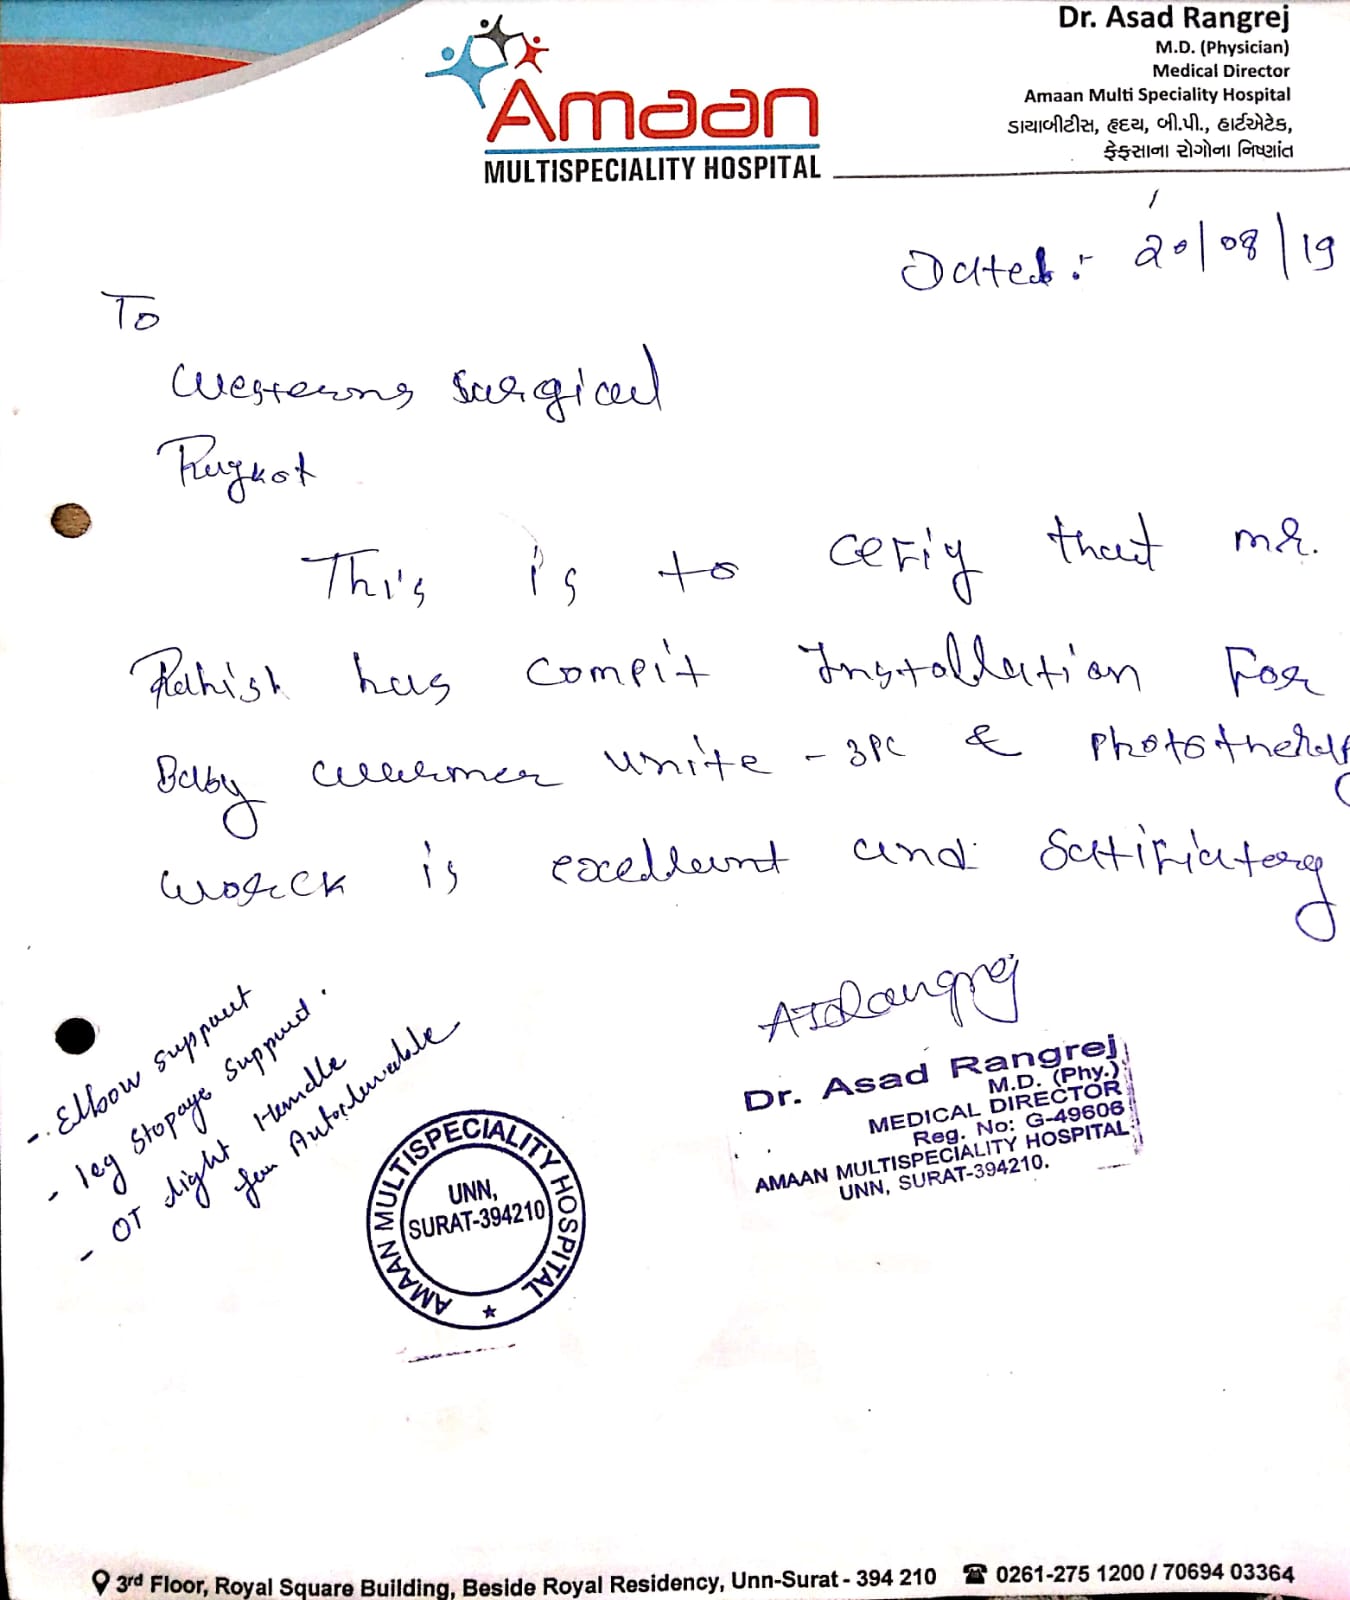 Dr. Asad Rangrej
M.D. (Physician)
Medical Director
Amaan Multi Speciality Hospital
ડાયાબીટીસ, હૃદય, બી.પી., હાર્ટએટેક,
ફેફસાના રોગોના નિષ્ણાંત
Amaan
MULTISPECIALITY HOSPITAL
Dated :- 20/08/19
To
Westerns Surgical
Rugkot
This is to cerfiy that mr.
has compit Installation For
Baby warmer unite - 3PC & Phototherapy
worck is excellent and Satifiatory
Asdrangrej
Dr. Asad Rangrej
M.D. (Phy.)
MEDICAL DIRECTOR
Reg. No: G-49606
AMAAN MULTISPECIALITY HOSPITAL
UNN, SURAT-394210.
- Elbow support
- leg Stopage Support.
- OT light Handle
for Autoclevable
AMAAN MULTISPECIALITY HOSPITAL
UNN,
SURAT-394210
3rd Floor, Royal Square Building, Beside Royal Residency, Unn-Surat - 394 210 ☎ 0261-275 1200 / 70694 03364